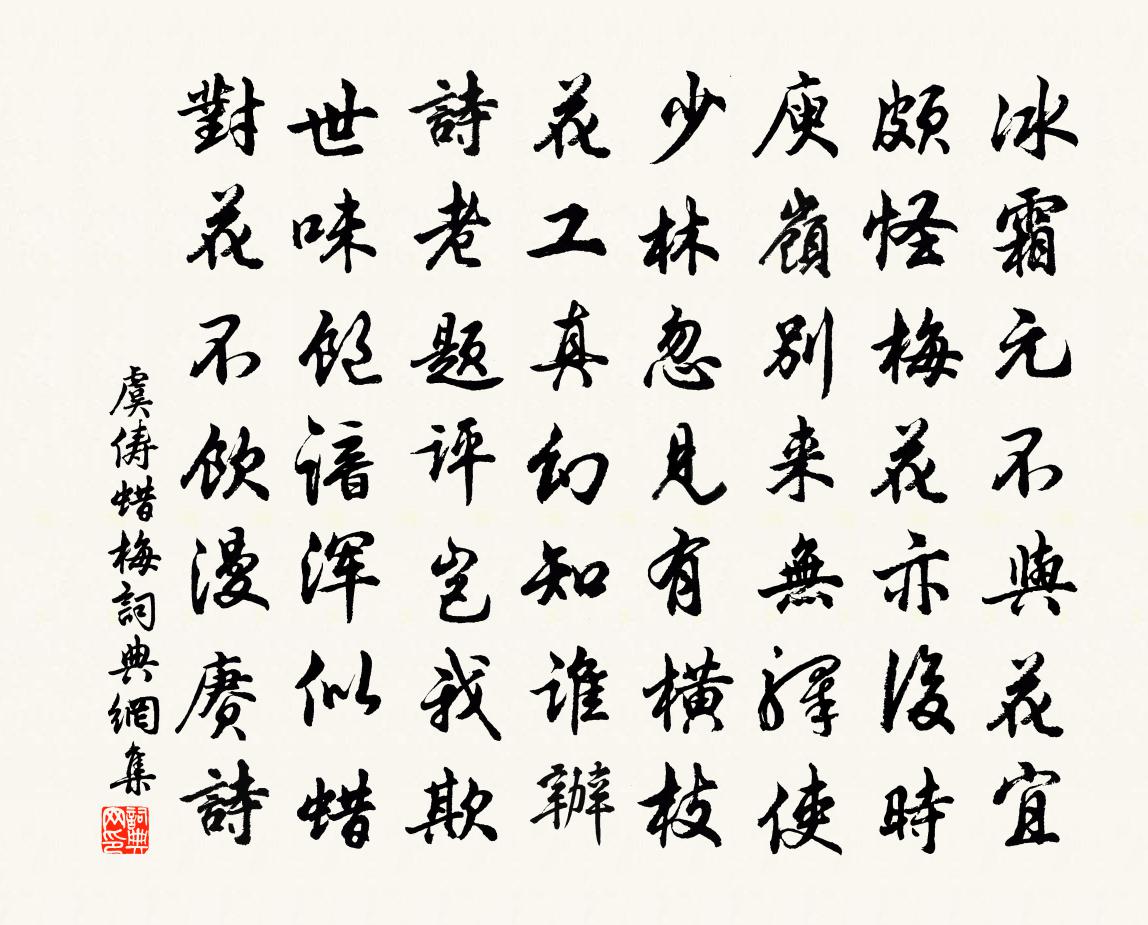 冰霜元不與花宜
頗怪梅花亦後時
庾嶺別来無驛使
少林忽見有橫枝
花工真幻知誰辦
詩老題評豈我欺
世味飽諳渾似蜡
對花不飲漫賡詩
虞儔蜡梅詞典網集
詞典网印